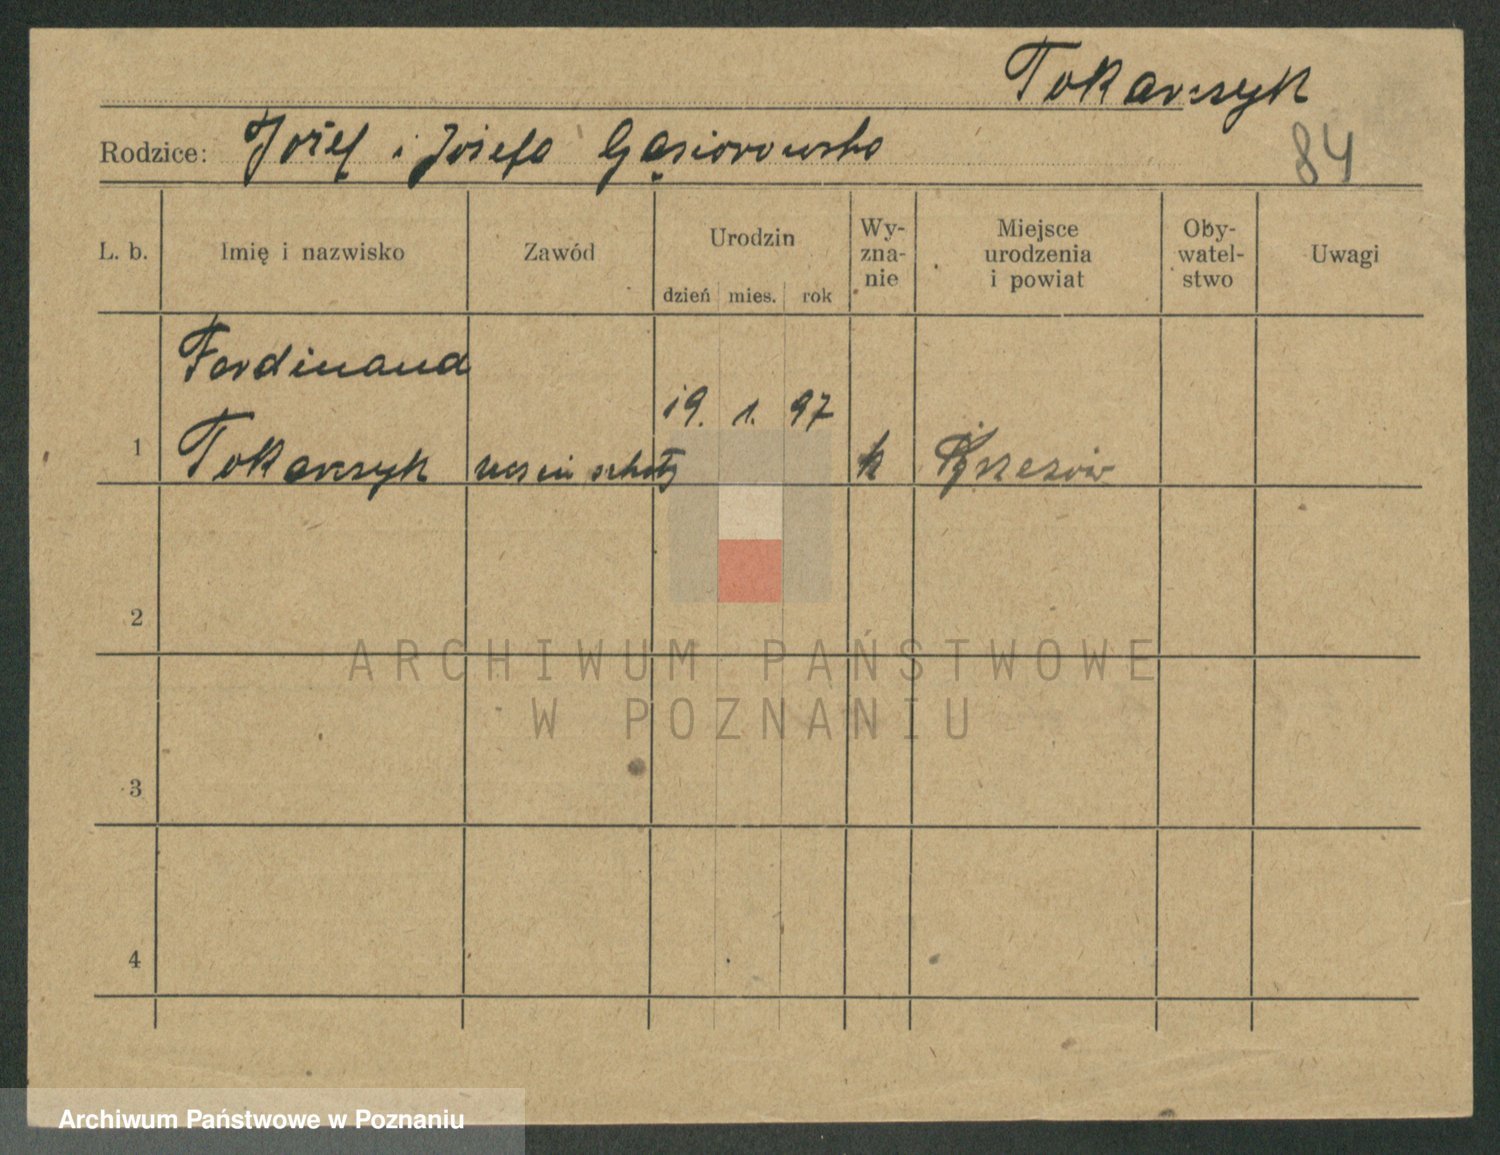 Tokarczyk
Rodzice: Józef i Józefa Gąsiorowska
84
L. b. Imię i nazwisko Zawód Urodzin dzień mies. rok Wy-zna-nie Miejsce urodzenia i powiat Oby-watel-stwo Uwagi
Ferdinand
19. 1. 97
1 Tokarczyk uczeń szkoły k
2
3
4
ARCHIWUM PAŃSTWOWE
W POZNANIU
Archiwum Państwowe w Poznaniu